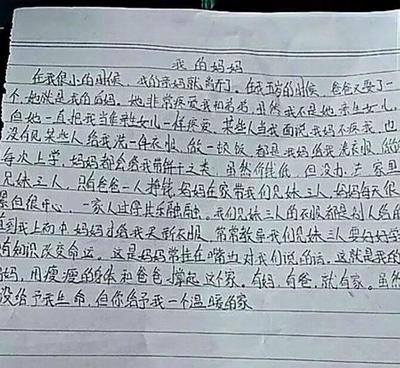 我的妈妈
在我很小的时候，我的亲妈就离开了，在我五岁的时候，爸爸又娶了一
个，她就是我的后妈。她非常疼爱我和弟弟，虽然我不是她亲生女儿，
但她一直把我当作亲生女儿一样疼爱，某些人当我面说我妈不疼我，也
没有见某些人给我洗一件衣服，做一顿饭，都是我妈给我洗衣服，做
每次上学，妈妈都会给我带饼干之类，虽然价钱低，但没办，家里
兄妹三人，只有爸爸一人挣钱，妈妈在家带我们兄妹三人，妈妈每天很
累但很开心，一家人过得其乐融融。我们兄妹三人的衣服都是别人给的
直到我上初中，妈妈才给我买新衣服，常常教导我们兄妹三人要好好学
有知识改变命运。这是妈妈常挂在嘴边对我们说的话，这就是我的
妈，用瘦瘦的身体和爸爸撑起这个家，有妈，有爸，就有家。虽然
没给予我生命，但你给予我一个温暖的家